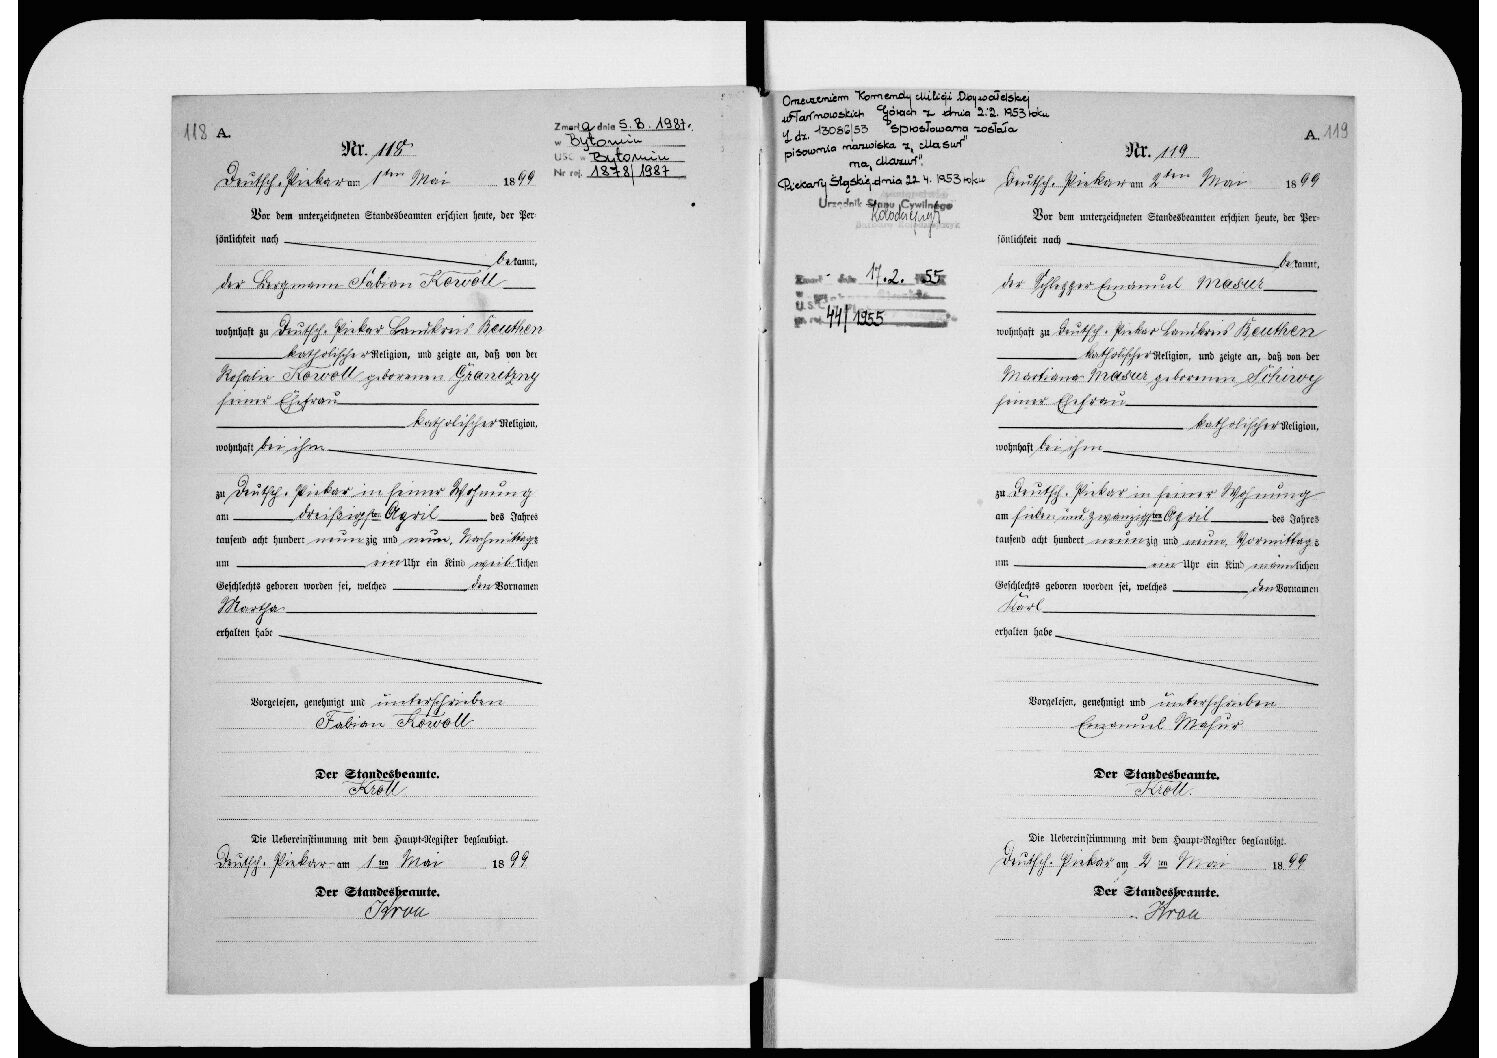 118 A.
Nr. 118
Deutsch-Piekar am 1ten Mai 1899
Vor dem unterzeichneten Standesbeamten erschien heute, der Per-
sönlichkeit nach
bekannt,
der Bergmann Fabian Kowoll
wohnhaft zu Deutsch-Piekar Landkreis Beuthen
katholischer Religion, und zeigte an, daß von der
Rosalie Kowoll geborenen Granetzny
seiner Ehefrau
katholischer Religion,
wohnhaft bei ihm
zu Deutsch-Piekar in seiner Wohnung
am dreißigsten April des Jahres
tausend acht hundert neunzig und neun, Nachmittags
um ein Uhr ein Kind weiblichen
Geschlechts geboren worden sei, welches den Vornamen
Martha
erhalten habe
Vorgelesen, genehmigt und unterschrieben
Fabian Kowoll
Der Standesbeamte.
Kroll
Die Uebereinstimmung mit dem Haupt-Register beglaubigt.
Deutsch-Piekar am 1ten Mai 1899
Der Standesbeamte.
Kroll
Zmarła dnia 5.8.1987r.
w Bytomiu
USC w Bytomiu
Nr rej. 1878/1987
Orzeczeniem Komendy Milicji Obywatelskiej
w Tarnowskich Górach z dnia 2.2.1953 roku
L dz. 13086/53 sprostowana została
pisownia nazwiska z „Masur"
na „Mazur".
Piekary Śląskie, dnia 22 4. 1953 roku
Urzędnik Stanu Cywilnego
Zmarł dnia 17.2.1955
44/1955
A. 119
Nr. 119
Deutsch-Piekar am 2ten Mai 1899
Vor dem unterzeichneten Standesbeamten erschien heute, der Per-
sönlichkeit nach
bekannt,
der Schlepper Emanuel Masur
wohnhaft zu Deutsch-Piekar Landkreis Beuthen
katholischer Religion, und zeigte an, daß von der
Marianna Masur geborenen
seiner Ehefrau
katholischer Religion,
wohnhaft bei ihm
zu Deutsch-Piekar in seiner Wohnung
am sieben und zwanzigsten April des Jahres
tausend acht hundert neunzig und neun, Vormittags
um ein Uhr ein Kind männlichen
Geschlechts geboren worden sei, welches den Vornamen
Karl
erhalten habe
Vorgelesen, genehmigt und unterschrieben
Emanuel Masur
Der Standesbeamte.
Kroll.
Die Uebereinstimmung mit dem Haupt-Register beglaubigt.
Deutsch-Piekar am 2ten Mai 1899
Der Standesbeamte.
Kroll